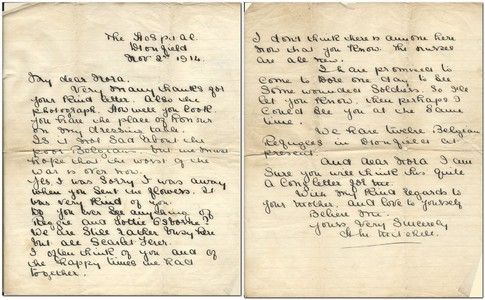 The Hospital.
Dronfield
Nov 2nd 1914.
My dear Nora.
Very many thanks for
your kind letter. Also the
photograph. How well you look
you have the place of honour
on my dressing table.
Is it not sad about the
poor Belgians. but we must
hope that the worst of the
war is over now.
Yes, I was sorry I was away
when you sent the flowers. It
was very kind of you.
Do you ever see anything of
Reggie and Dottie Osborne?
We are still rather busy here
but all Scarlet Fever.
I often think of you and of
the happy times we had
together.
I don't think there is anyone here
now that you know. The nurses
are all new.
I have promised to
come to Dore one day, to see
some wounded Soldiers. So I'll
let you know, then perhaps I
could see you at the same
time.
We have twelve Belgian
Refugees in Dronfield at
present.
And dear Nora I am
sure you will think this quite
a long letter for me.
With my kind regards to
your Mother, and love to yourself
Believe me.
Yours Very Sincerely
Mitchell.